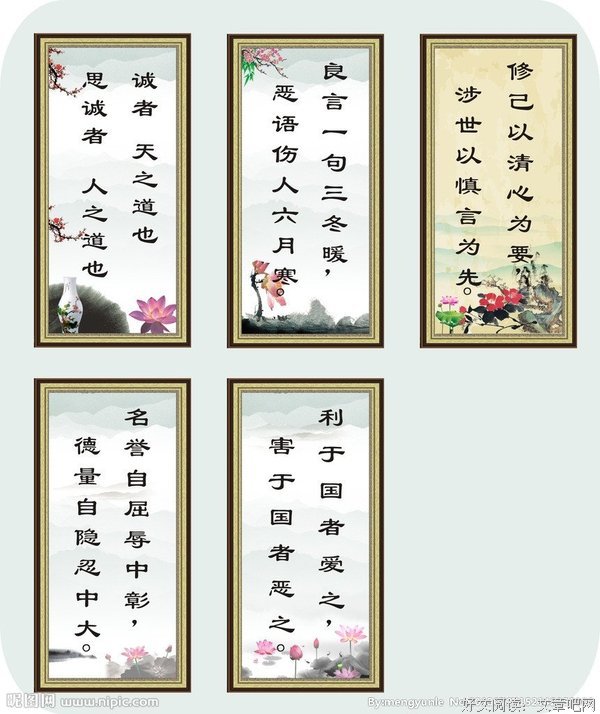 诚者 天之道也
思诚者 人之道也
良言一句三冬暖，
恶语伤人六月寒。
修己以清心为要，
涉世以慎言为先。
名誉自屈辱中彰，
德量自隐忍中大。
利于国者爱之，
害于国者恶之。
昵图网 www.nipic.com
By:mengyunle
好文阅读：文章吧网